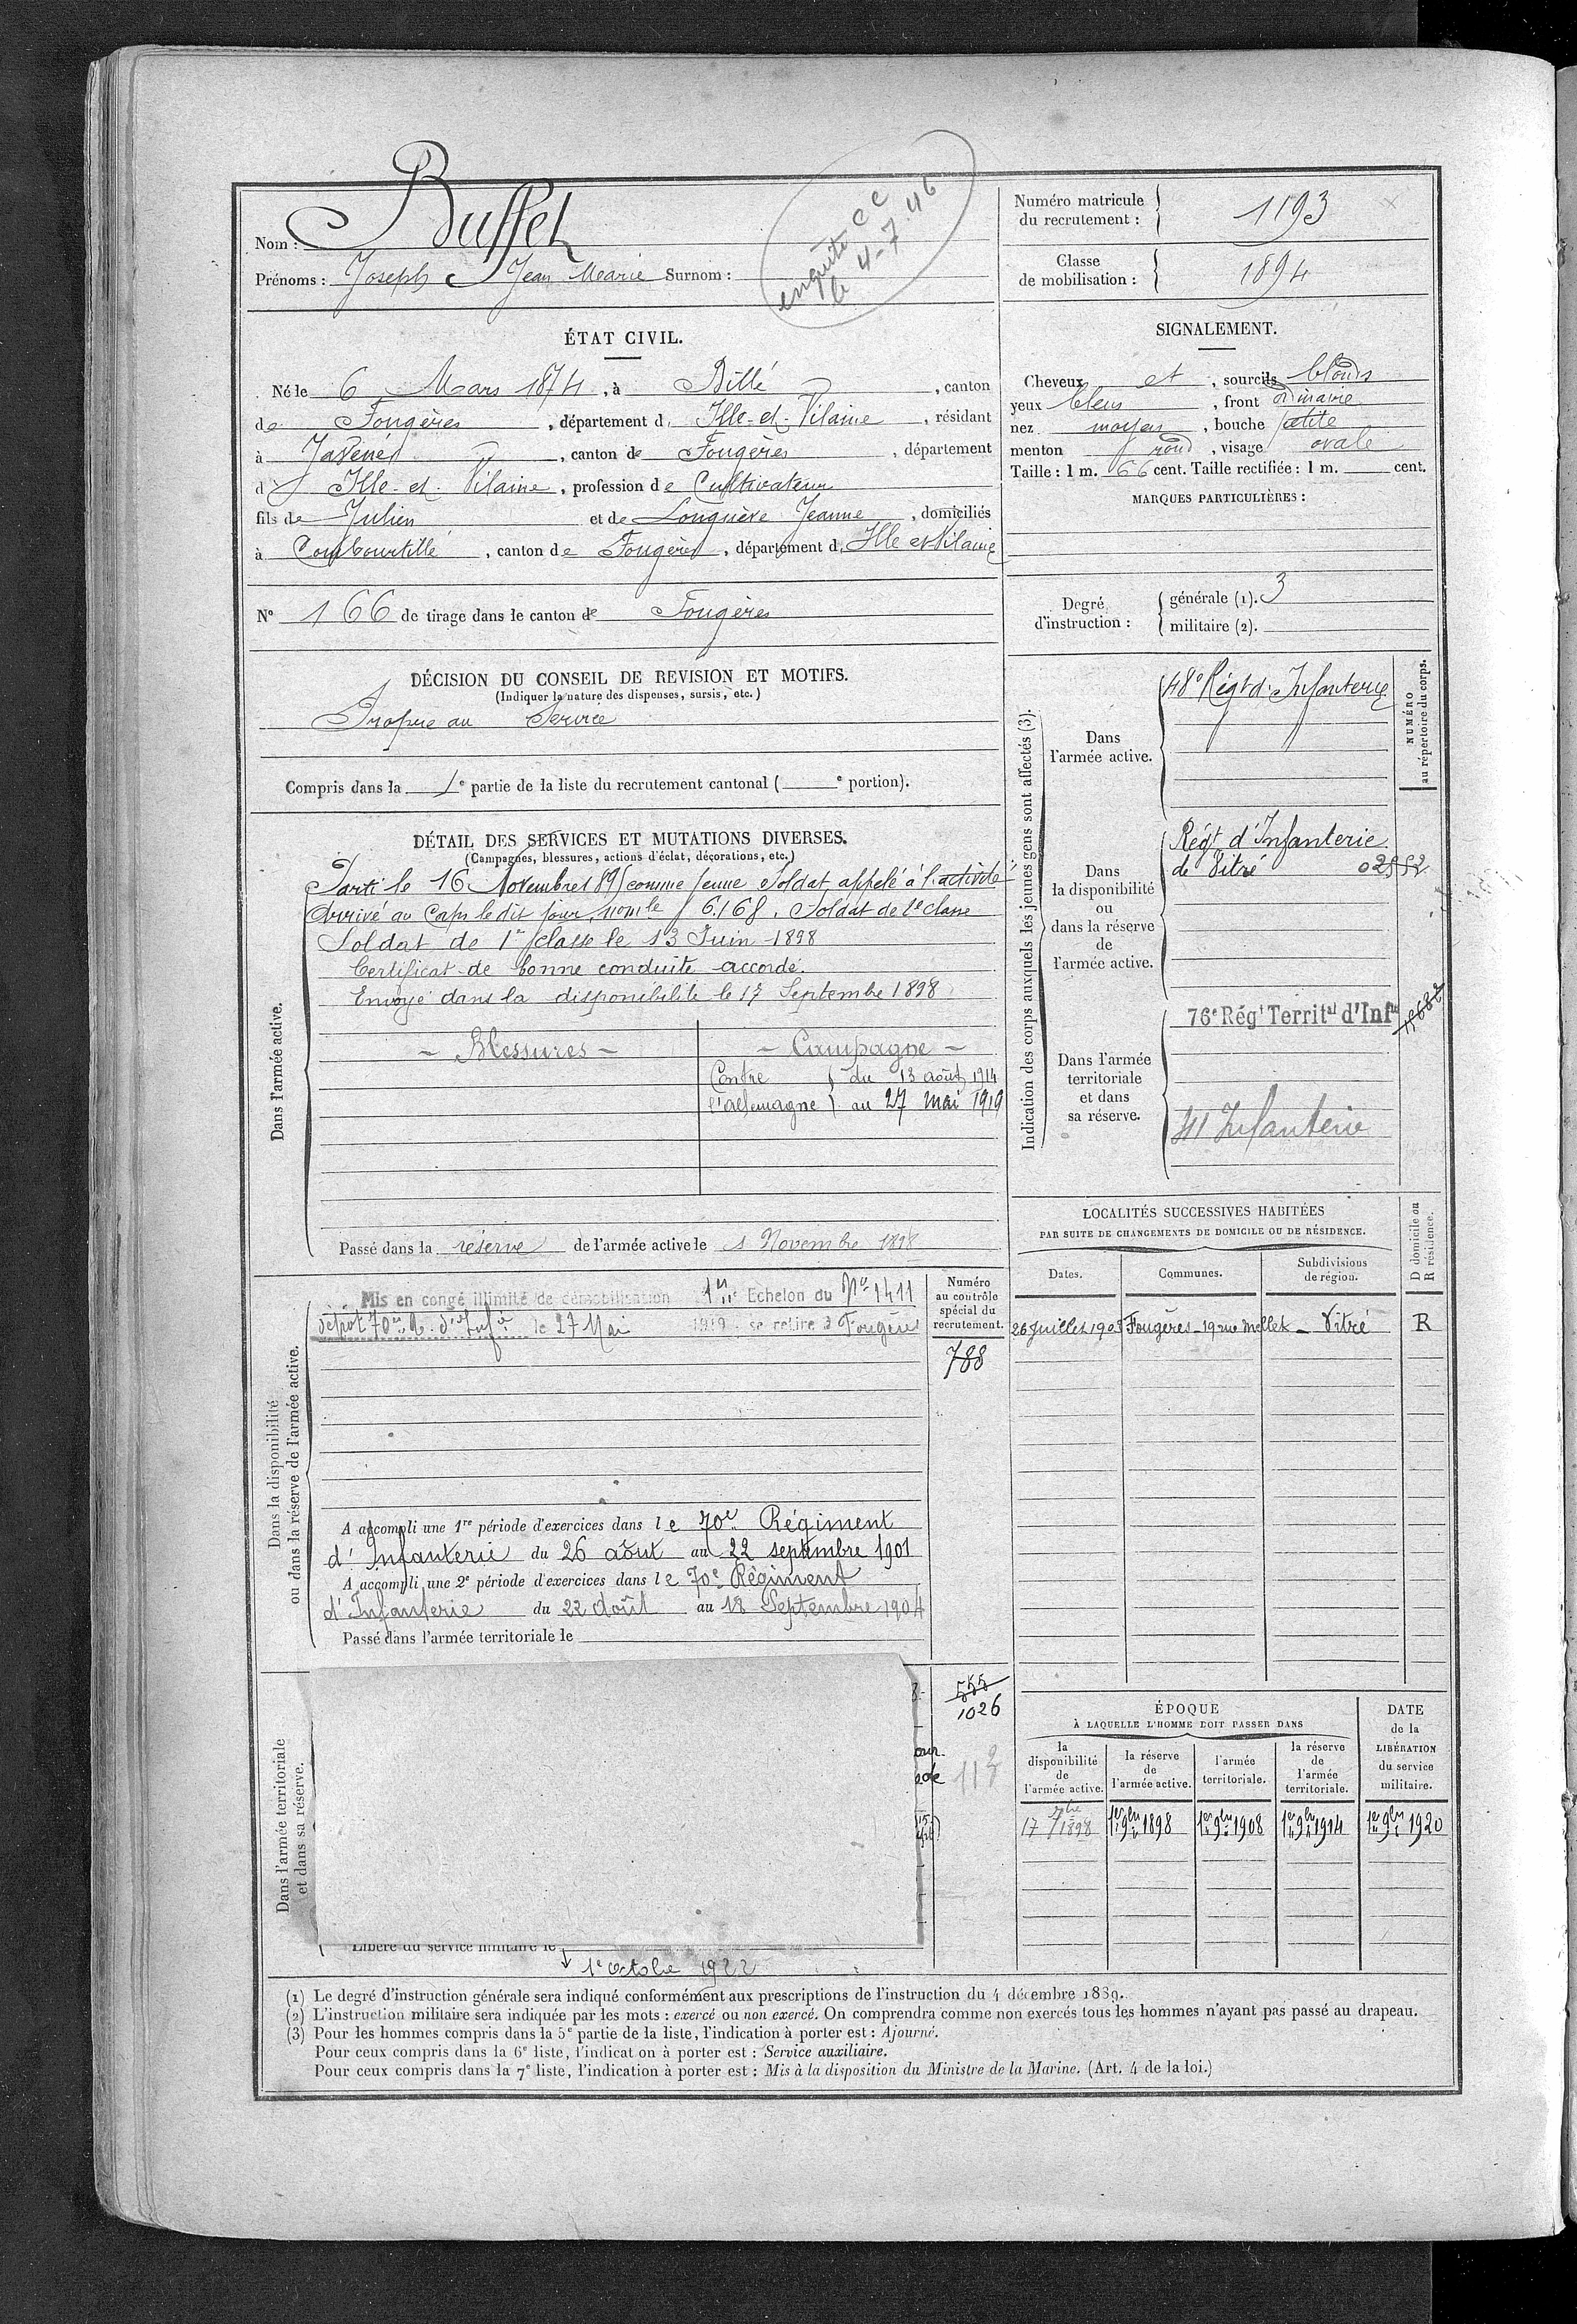 Nom : Buffet
Prénoms : Joseph Jean Marie Surnom :
enquête CC
le 4-7-46
Numéro matricule du recrutement : 1193
Classe de mobilisation : 1894
ÉTAT CIVIL.
Né le 6 Mars 1874, à Billé, canton
de Fougères, département d'Ille-et-Vilaine, résidant
à Javené, canton de Fougères, département
d' Ille-et-Vilaine, profession de Cultivateur
fils de Julien et de Longuève Jeanne, domiciliés
à Combourtillé, canton de Fougères, département d'Ille et Vilaine
N° 166 de tirage dans le canton de Fougères
DÉCISION DU CONSEIL DE REVISION ET MOTIFS.
(Indiquer la nature des dispenses, sursis, etc.)
Propre au Service
Compris dans la 1e partie de la liste du recrutement cantonal ( e portion).
DÉTAIL DES SERVICES ET MUTATIONS DIVERSES.
(Campagnes, blessures, actions d'éclat, décorations, etc.)
Dans l'armée active.
Parti le 16 Novembre 1895 comme jeune Soldat appelé à l'activité
Arrivé au Corps le dit jour, nom le 6.168. Soldat de 2e classe
Soldat de 1re classe le 13 Juin 1898
Certificat de bonne conduite accordé.
Envoyé dans la disponibilité le 17 Septembre 1898
- Blessures -
- Campagne -
Contre du 13 août 1914
l'allemagne au 27 mai 1919
Passé dans la réserve de l'armée active le 1 Novembre 1898
Dans la disponibilité
ou dans la réserve de l'armée active.
Mis en congé illimité de démobilisation 1er Echelon du No 1411
dépot 70e R. d'Infie le 27 Mai 1919 se retire à Fougères
Numéro au contrôle spécial du recrutement.
788
A accompli une 1re période d'exercices dans le 70e Régiment
d'Infanterie du 26 août au 22 septembre 1901
A accompli une 2e période d'exercices dans le 70e Régiment
d'Infanterie du 22 août au 18 Septembre 1904
Passé dans l'armée territoriale le
Dans l'armée territoriale
et dans sa réserve.
555
1026
Libéré du service militaire le
1e Octobre 1922
SIGNALEMENT.
Cheveux et, sourcils blonds
yeux bleus, front ordinaire
nez moyen, bouche petite
menton rond, visage ovale
Taille : 1 m. 66 cent. Taille rectifiée : 1 m. cent.
MARQUES PARTICULIÈRES :
Degré d'instruction :
générale (1). 3
militaire (2).
Indication des corps auxquels les jeunes gens sont affectés (3).
NUMÉRO
au répertoire du corps.
Dans
l'armée active.
48e Régt d'Infanterie
Dans
la disponibilité
ou
dans la réserve
de
l'armée active.
Régt d'Infanterie
de Vitré 02552
Dans l'armée
territoriale
et dans
sa réserve.
76e Régt Territal d'Infie
41 Infanterie
LOCALITÉS SUCCESSIVES HABITÉES
PAR SUITE DE CHANGEMENTS DE DOMICILE OU DE RÉSIDENCE.
Dates.
Communes.
Subdivisions
de région.
D domicile ou
R résidence.
26 Juillet 1903 Fougères - 19 rue Mellet - Vitré R
ÉPOQUE
À LAQUELLE L'HOMME DOIT PASSER DANS
la
disponibilité
de
l'armée active.
la réserve
de
l'armée active.
l'armée
territoriale.
la réserve
de
l'armée
territoriale.
DATE
de la
LIBÉRATION
du service
militaire.
17 7bre 1898
1er 9bre 1898
1er 9bre 1908
1er 9bre 1914
1er 9bre 1920
(1) Le degré d'instruction générale sera indiqué conformément aux prescriptions de l'instruction du 4 décembre 1889.
(2) L'instruction militaire sera indiquée par les mots : exercé ou non exercé. On comprendra comme non exercés tous les hommes n'ayant pas passé au drapeau.
(3) Pour les hommes compris dans la 5e partie de la liste, l'indication à porter est : Ajourné.
Pour ceux compris dans la 6e liste, l'indicat on à porter est : Service auxiliaire.
Pour ceux compris dans la 7e liste, l'indication à porter est : Mis à la disposition du Ministre de la Marine. (Art. 4 de la loi.)